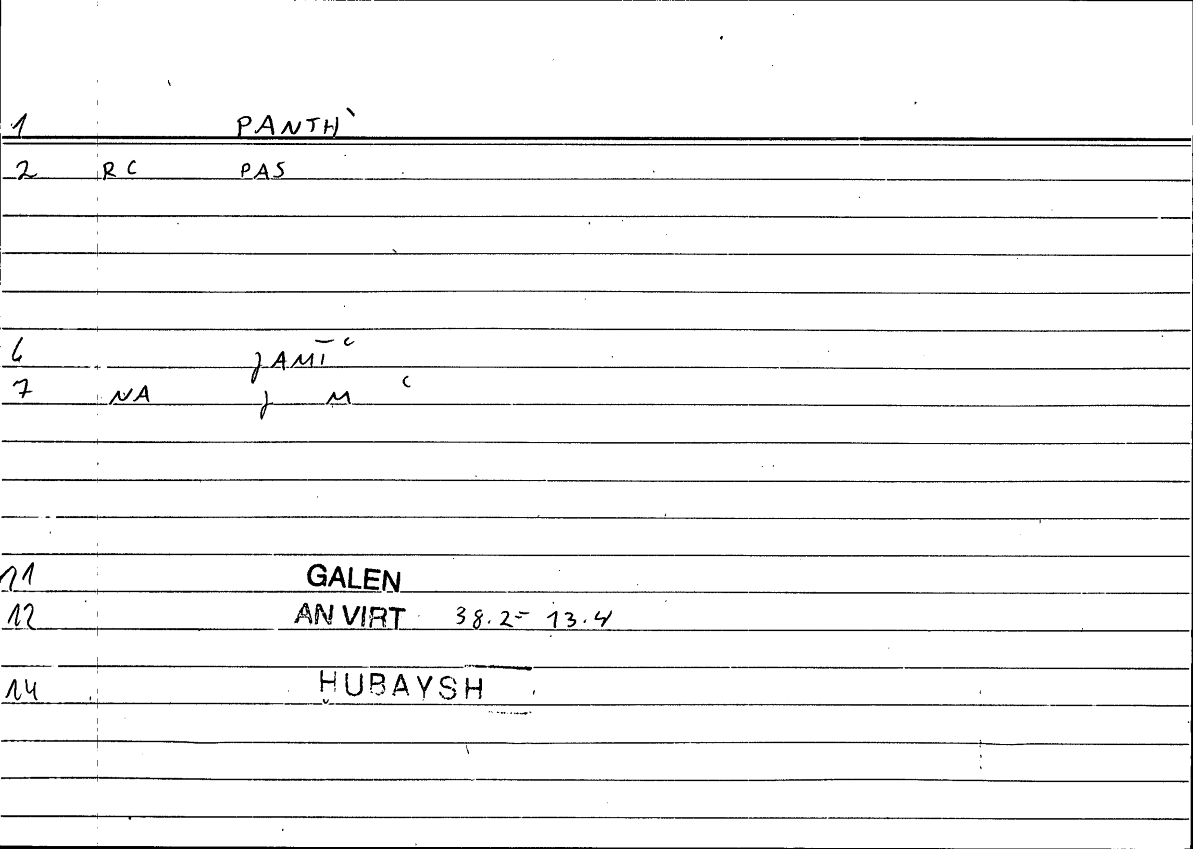 1 PANTH`
2 RC PAS
6 JAMĪʿ
7 NA J M ʿ
11 GALEN
12 AN VIRT 38.2= 13.4
14 ḤUBAYSH